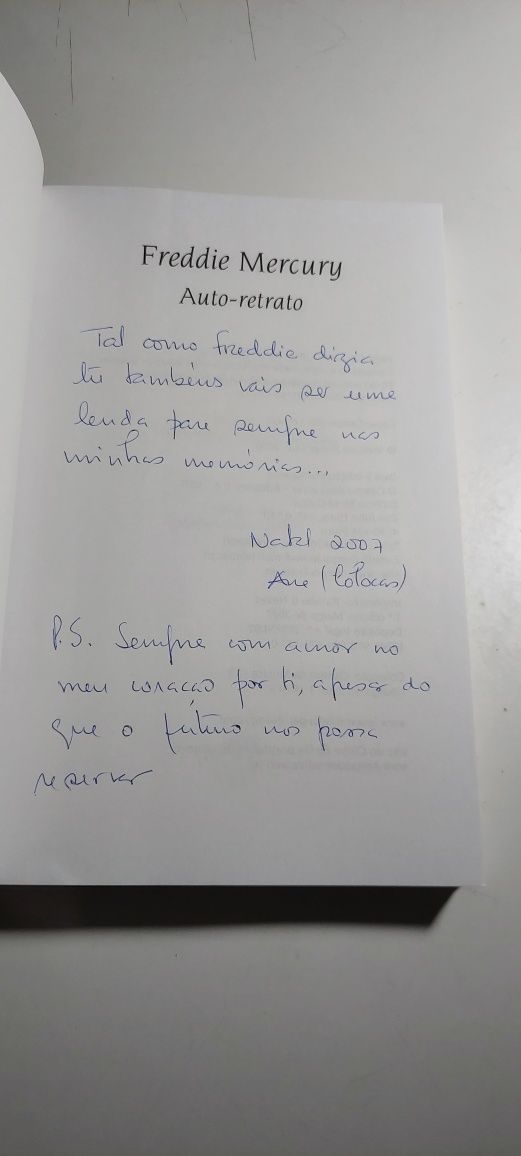 Freddie Mercury
Auto-retrato
Tal como freddie dizia
tu também vais ser uma
lenda para sempre nas
minhas memórias...
Natal 2007
Ana (Cotocas)
P.S. Sempre com amor no
meu coração por ti, apesar do
que o futuro nos possa
reservar